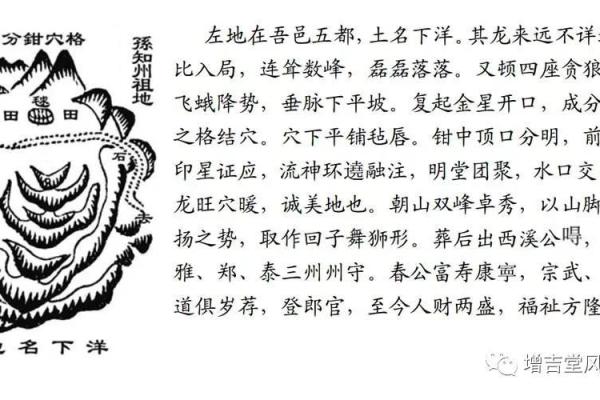 分鉗穴格
孫知州祖地
毬
田
田
石
名下洋
左地在吾邑五都，土名下洋。其龙来远不详
比入局，连耸数峰，磊磊落落。又顿四座贪狼
飞蛾降势，垂脉下平坡。复起金星开口，成分
之格结穴。穴下平铺毡唇。钳中顶口分明，前
印星证应，流神环遶融注，明堂团聚，水口交
龙旺穴暖，诚美地也。朝山双峰卓秀，以山脚
扬之势，取作回子舞狮形。葬后出西溪公嘚，
雅、郑、泰三州州守。春公富寿康寧，宗武、
道俱岁荐，登郎官，至今人财两盛，福祉方隆
增吉堂风